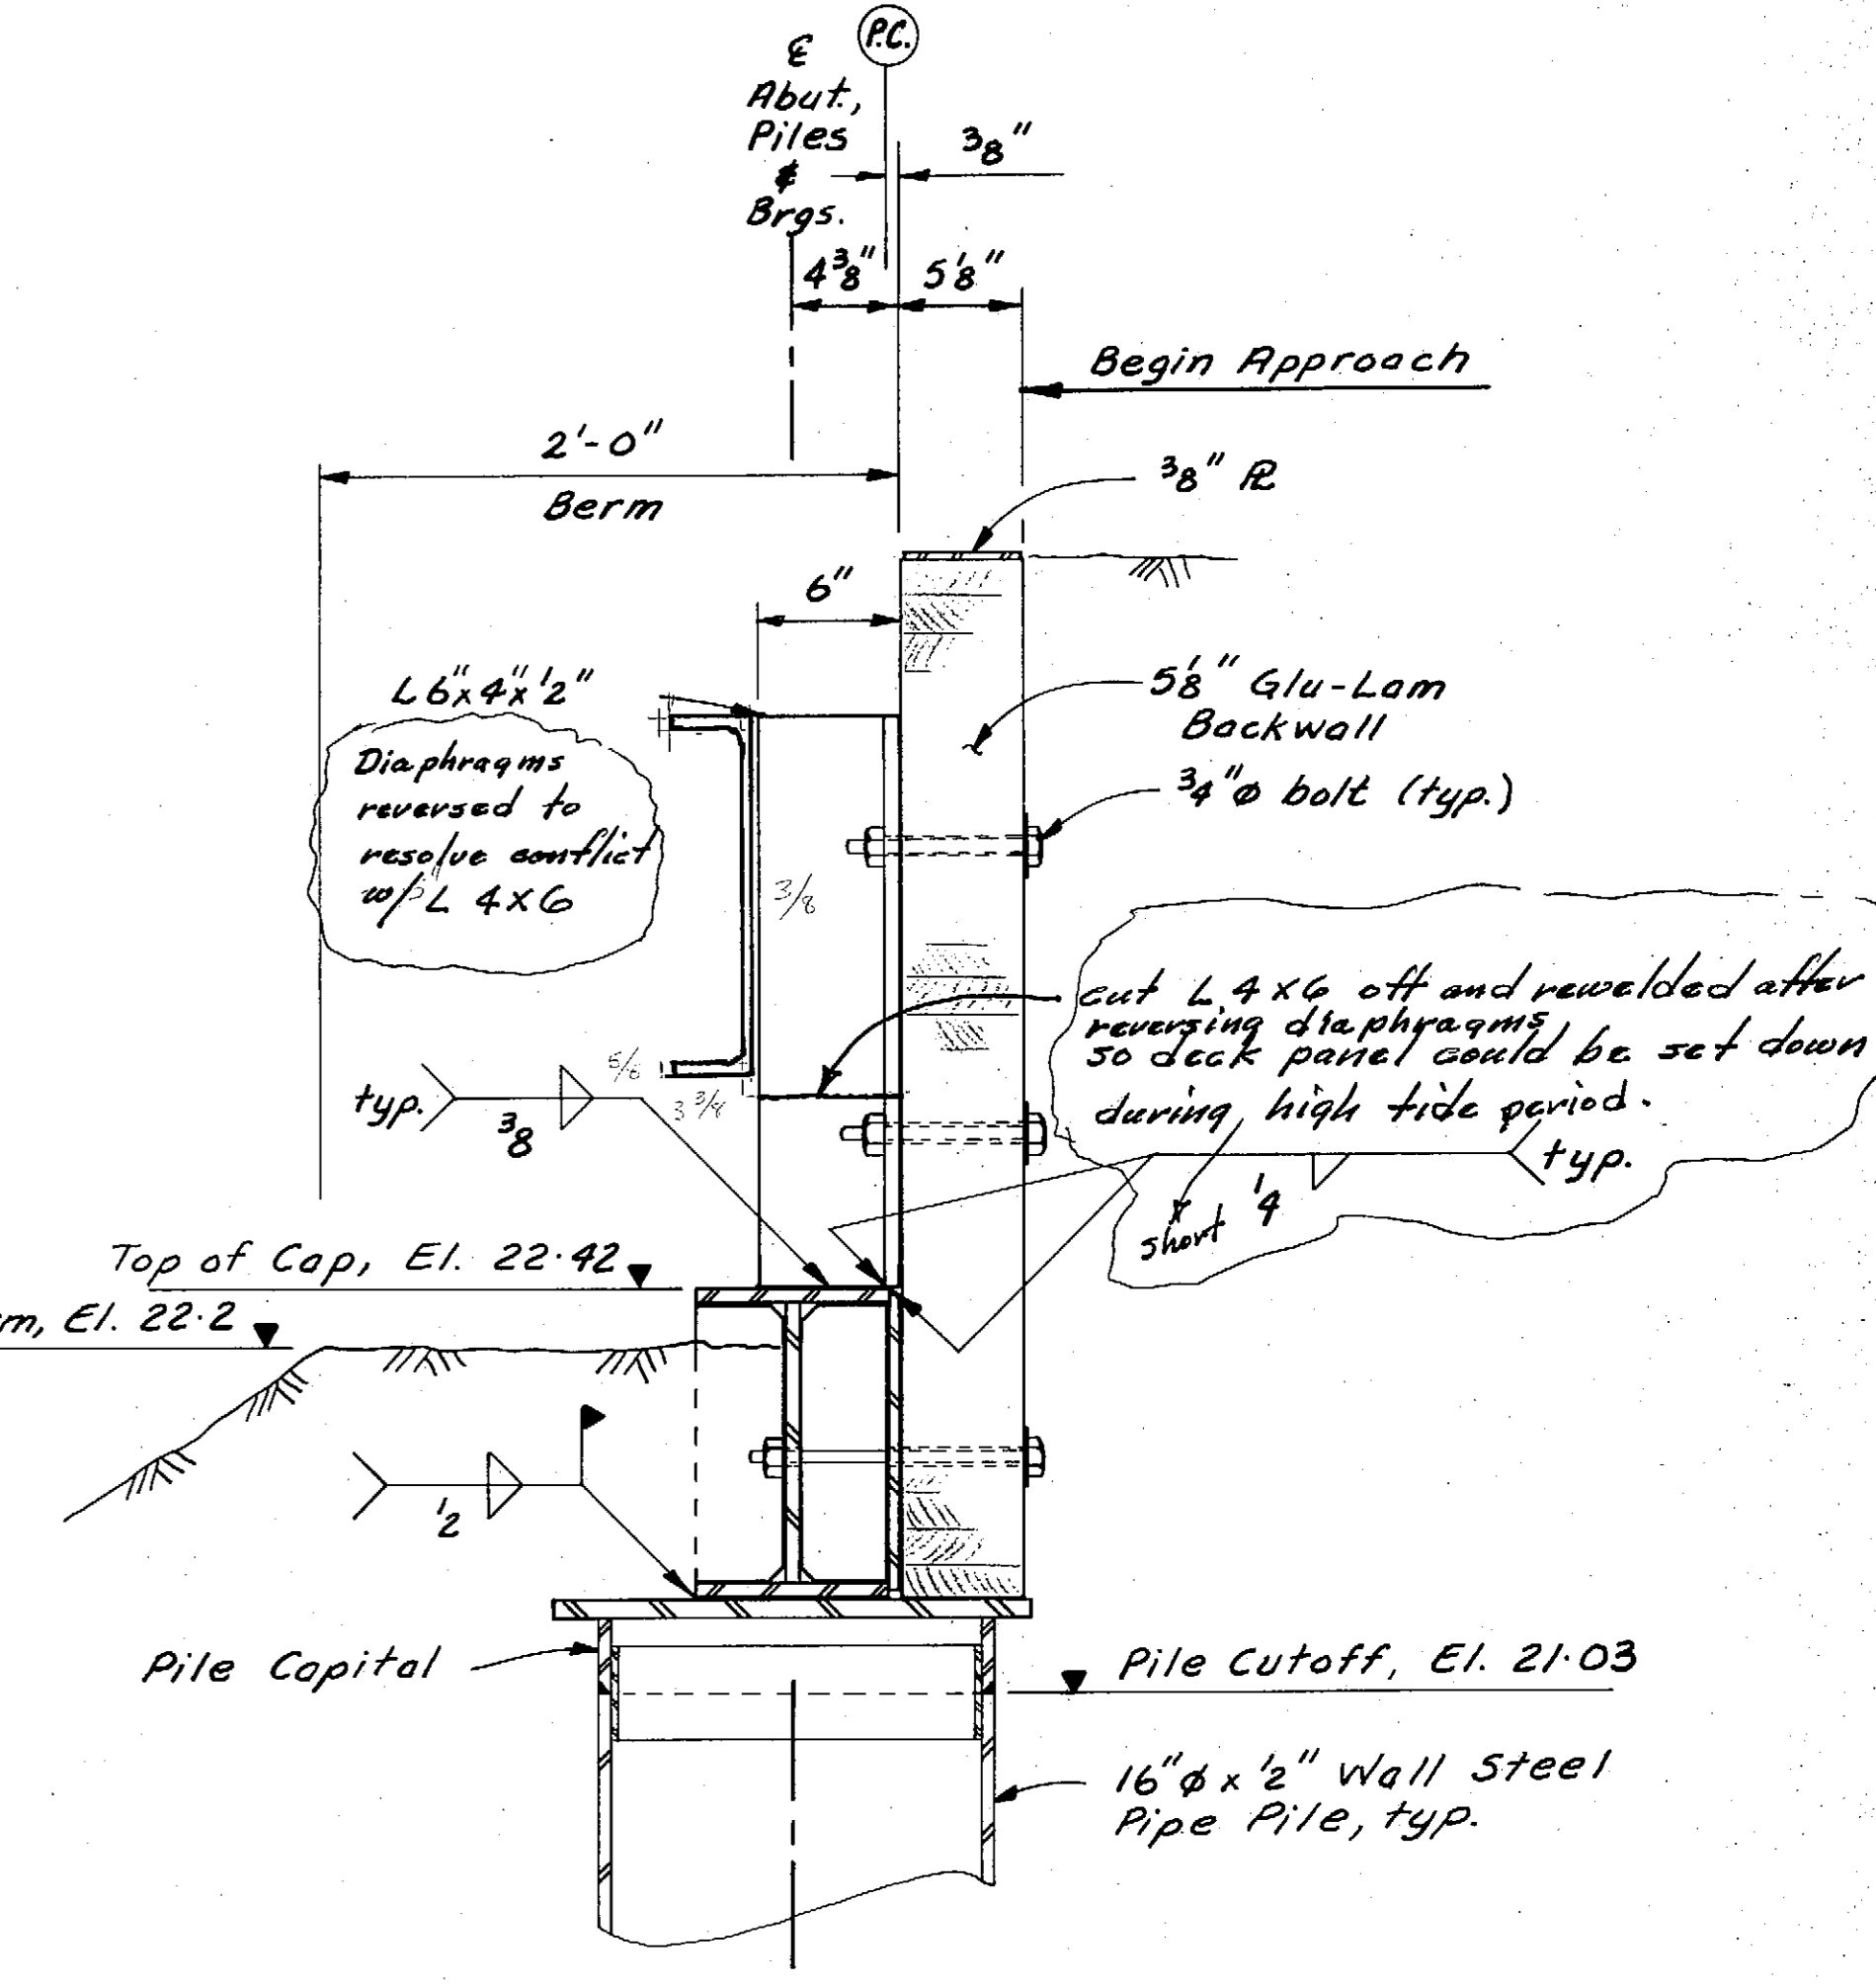 P.C.
℄
Abut.,
Piles
&
Brgs.
3/8"
4 3/8"
5 1/8"
Begin Approach
2'-0"
Berm
3/8" ℞
6"
L 6"x4"x1/2"
5 1/8" Glu-Lam
Backwall
Diaphragms
reversed to
resolve conflict
w/ L 4x6
3/4"ø bolt (typ.)
3/8
cut L 4x6 off and rewelded after
reversing diaphragms
so deck panel could be set down
during high tide period.
short
5/8
3 3/8
typ.
3/8
typ.
1/4
Top of Cap, El. 22.42
m, El. 22.2
1/2
Pile Capital
Pile Cutoff, El. 21.03
16"ø x 1/2" Wall Steel
Pipe Pile, typ.